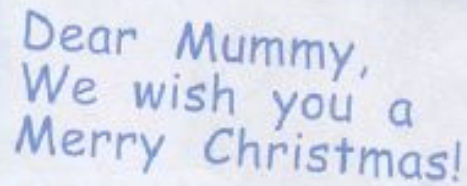 Dear Mummy,
We wish you a
Merry Christmas!